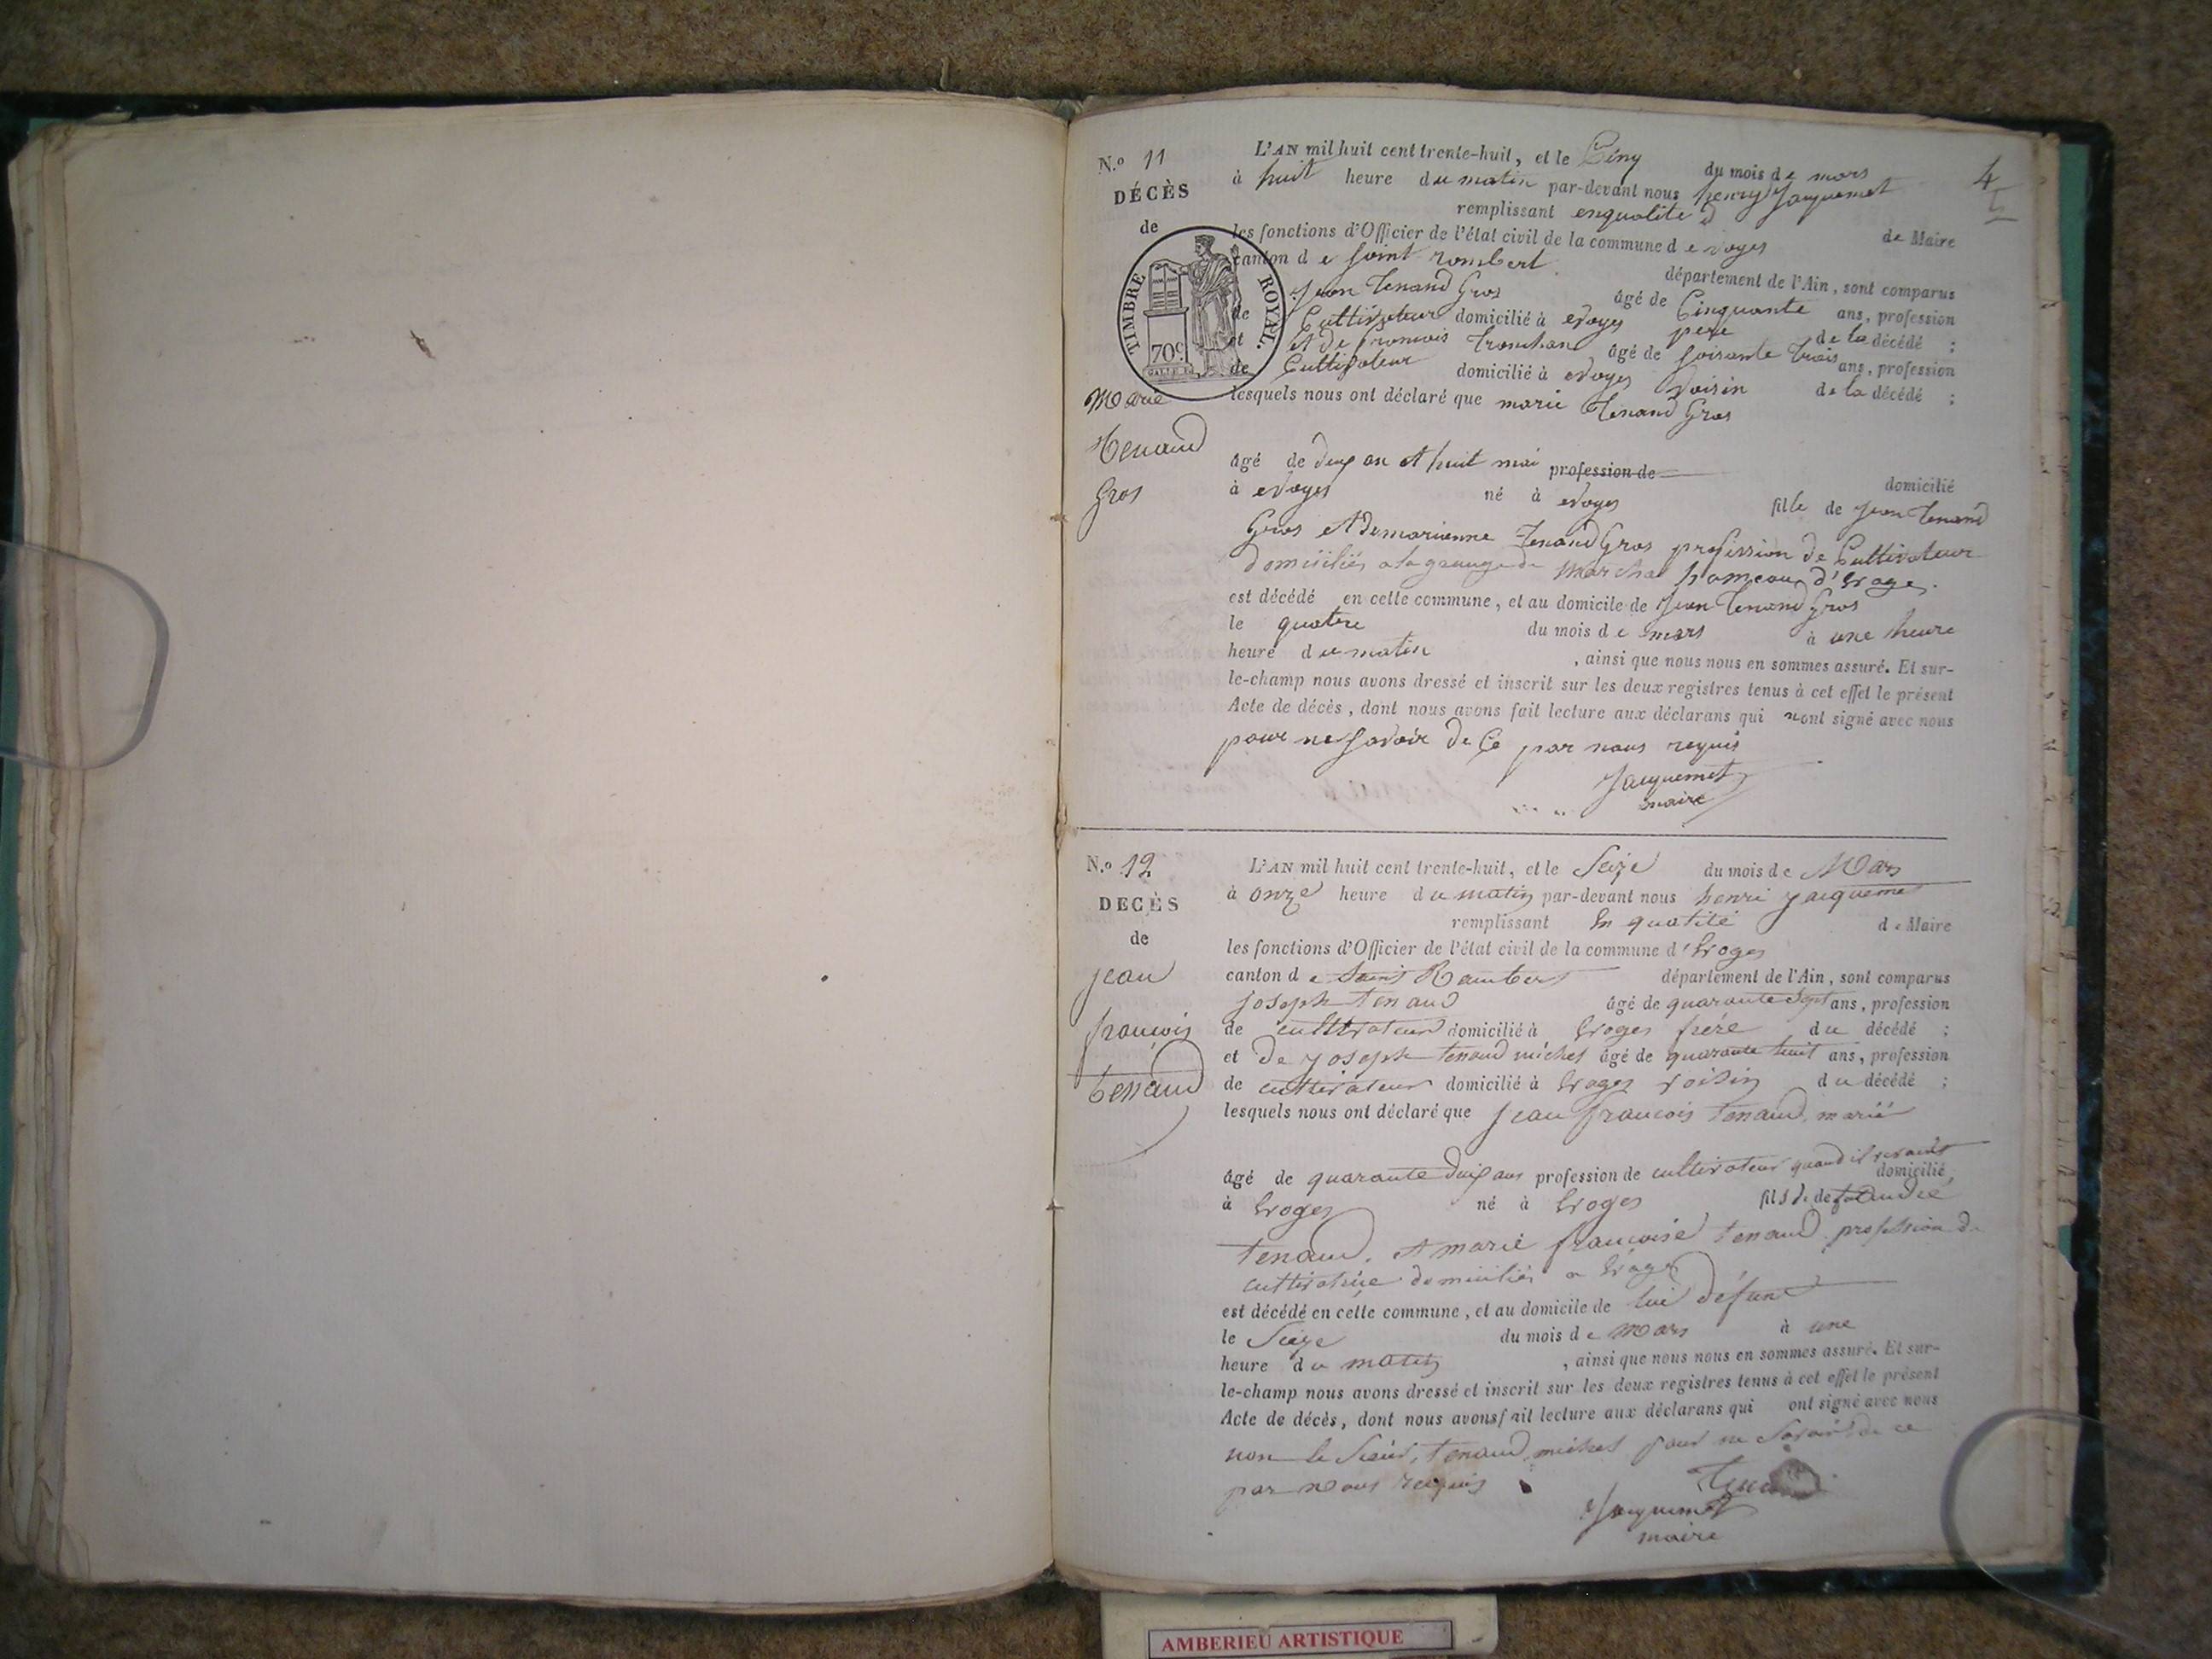 N.o 11
DÉCÈS
de
Marie
Tenand
gros
TIMBRE ROYAL.
70c
4
5
L'AN mil huit cent trente-huit, et le Cinq du mois de mars
à huit heure du matin par-devant nous henry Jacquemet
remplissant enqualité d de Maire
les fonctions d'Officier de l'état civil de la commune de evoges
canton de saint rombert département de l'Ain, sont comparus
Jean Tenand Gros âgé de Cinquante ans, profession
de Cultivateur domicilié à evoges pere de la décédé ;
et et de francois Tronchan âgé de soisante trois ans, profession
de Cultivateur domicilié à evoges voisin de la décédé ;
lesquels nous ont déclaré que marie Tenand Gros
âgé de deux an et huit moi profession de domicilié
à evoges né à evoges fille de jean Tenand
Gros et de marianne Tenand Gros profession de Cultivateur
domiciliés a la grange de marchat hameau d'Evoges.
est décédé en cette commune, et au domicile de Jean Tenand Gros
le quatre du mois de mars à une heure
heure du matin , ainsi que nous nous en sommes assuré. Et sur-
le-champ nous avons dressé et inscrit sur les deux registres tenus à cet effet le présent
Acte de décès, dont nous avons fait lecture aux déclarans qui nont signé avec nous
pour ne savoir de Ce par nous requis
Jacquemet
maire
N.o 12
DECÈS
de
jean
françois
tenand
L'AN mil huit cent trente-huit, et le Seize du mois de Mars
à onze heure du matin par-devant nous henri jacquemet
remplissant En qualité de Maire
les fonctions d'Officier de l'état civil de la commune d'Evoges
canton de Saint Rambert département de l'Ain, sont comparus
joseph tenand âgé de quarante sept ans, profession
de cultivateur domicilié à Evoges frère du décédé ;
et de joseph tenand michel âgé de quarante huit ans, profession
de cultivateur domicilié à Evoges voisin du décédé ;
lesquels nous ont déclaré que jean francois tenand, marié
âgé de quarante deux ans profession de cultivateur quand il vivait domicilié
à Evoges né à Evoges fils de
tenand. et marie françoise tenand profession de
cultivatrice domiciliés a Evoges
est décédé en cette commune, et au domicile de lui défunt
le Seize du mois de Mars à une
heure du matin , ainsi que nous nous en sommes assuré. Et sur-
le-champ nous avons dressé et inscrit sur les deux registres tenus à cet effet le présent
Acte de décès, dont nous avons fait lecture aux déclarans qui ont signé avec nous
non le Sieur, tenand michel pour ne Savoir de ce
par nous requis
Jacquemet
maire
AMBERIEU ARTISTIQUE